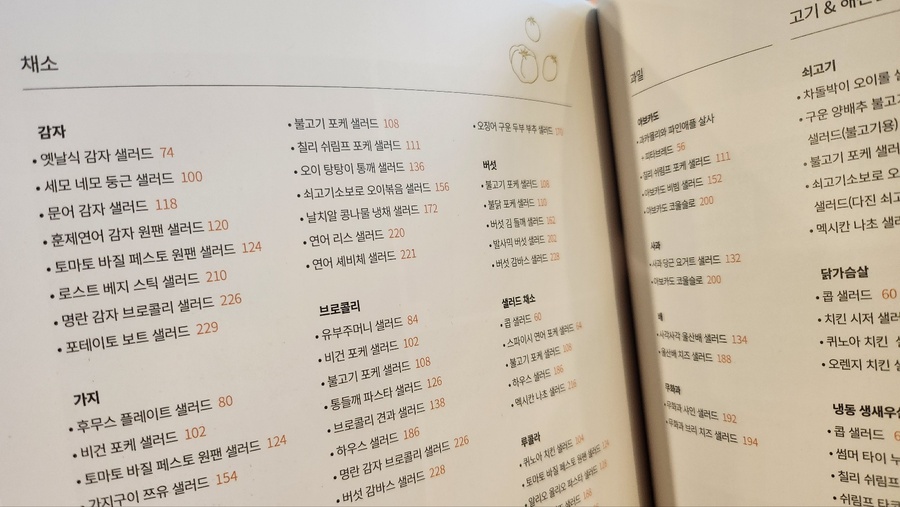 채소
감자
• 옛날식 감자 샐러드 74
• 세모 네모 둥근 샐러드 100
• 문어 감자 샐러드 118
• 훈제연어 감자 원팬 샐러드 120
• 토마토 바질 페스토 원팬 샐러드 124
• 로스트 베지 스틱 샐러드 210
• 명란 감자 브로콜리 샐러드 226
• 포테이토 보트 샐러드 229
가지
• 후무스 플레이트 샐러드 80
• 비건 포케 샐러드 102
• 토마토 바질 페스토 원팬 샐러드 124
• 가지구이 쯔유 샐러드 154
• 불고기 포케 샐러드 108
• 칠리 쉬림프 포케 샐러드 111
• 오이 탕탕이 통깨 샐러드 136
• 쇠고기소보로 오이볶음 샐러드 156
• 날치알 콩나물 냉채 샐러드 172
• 연어 리스 샐러드 220
• 연어 세비체 샐러드 221
브로콜리
• 유부주머니 샐러드 84
• 비건 포케 샐러드 102
• 불고기 포케 샐러드 108
• 통들깨 파스타 샐러드 126
• 브로콜리 견과 샐러드 138
• 하우스 샐러드 186
• 명란 감자 브로콜리 샐러드 226
• 버섯 감바스 샐러드 228
• 오징어 구운 두부 부추 샐러드
버섯
• 불고기 포케 샐러드 108
• 불닭 포케 샐러드 110
• 버섯 김 들깨 샐러드 162
• 발사믹 버섯 샐러드 202
• 버섯 감바스 샐러드 228
샐러드 채소
• 콥 샐러드 60
• 스파이시 연어 포케 샐러드 64
• 불고기 포케 샐러드 108
• 하우스 샐러드 186
• 멕시칸 나초 샐러드 216
루콜라
• 퀴노아 치킨 샐러드 104
• 토마토 바질 페스토 원팬 샐러드
• 알리오 올리오 파스타 샐러드
• 하우스 샐러드 186
과일
아보카도
• 과카몰리와 파인애플 살사
+ 피타브레드 56
• 칠리 쉬림프 포케 샐러드 111
• 아보카도 비빔 샐러드 152
• 아보카도 코울슬로 200
사과
• 사과 당근 요거트 샐러드 132
• 아보카도 코울슬로 200
배
• 사각사각 울산배 샐러드 134
• 울산배 치즈 샐러드 188
무화과
• 무화과 샤인 샐러드 192
• 무화과 브리 치즈 샐러드 194
고기 &
쇠고기
• 차돌박이 오이롤
• 구운 양배추 불고
샐러드(불고기용)
• 불고기 포케 샐
• 쇠고기소보로 오
샐러드(다진 쇠고
• 멕시칸 나초 샐러
닭가슴살
• 콥 샐러드 60
• 치킨 시저 샐러
• 퀴노아 치킨
• 오렌지 치킨
냉동 생새우살
• 콥 샐러드 6
• 썸머 타이 누
• 칠리 쉬림프
• 쉬림프 타코